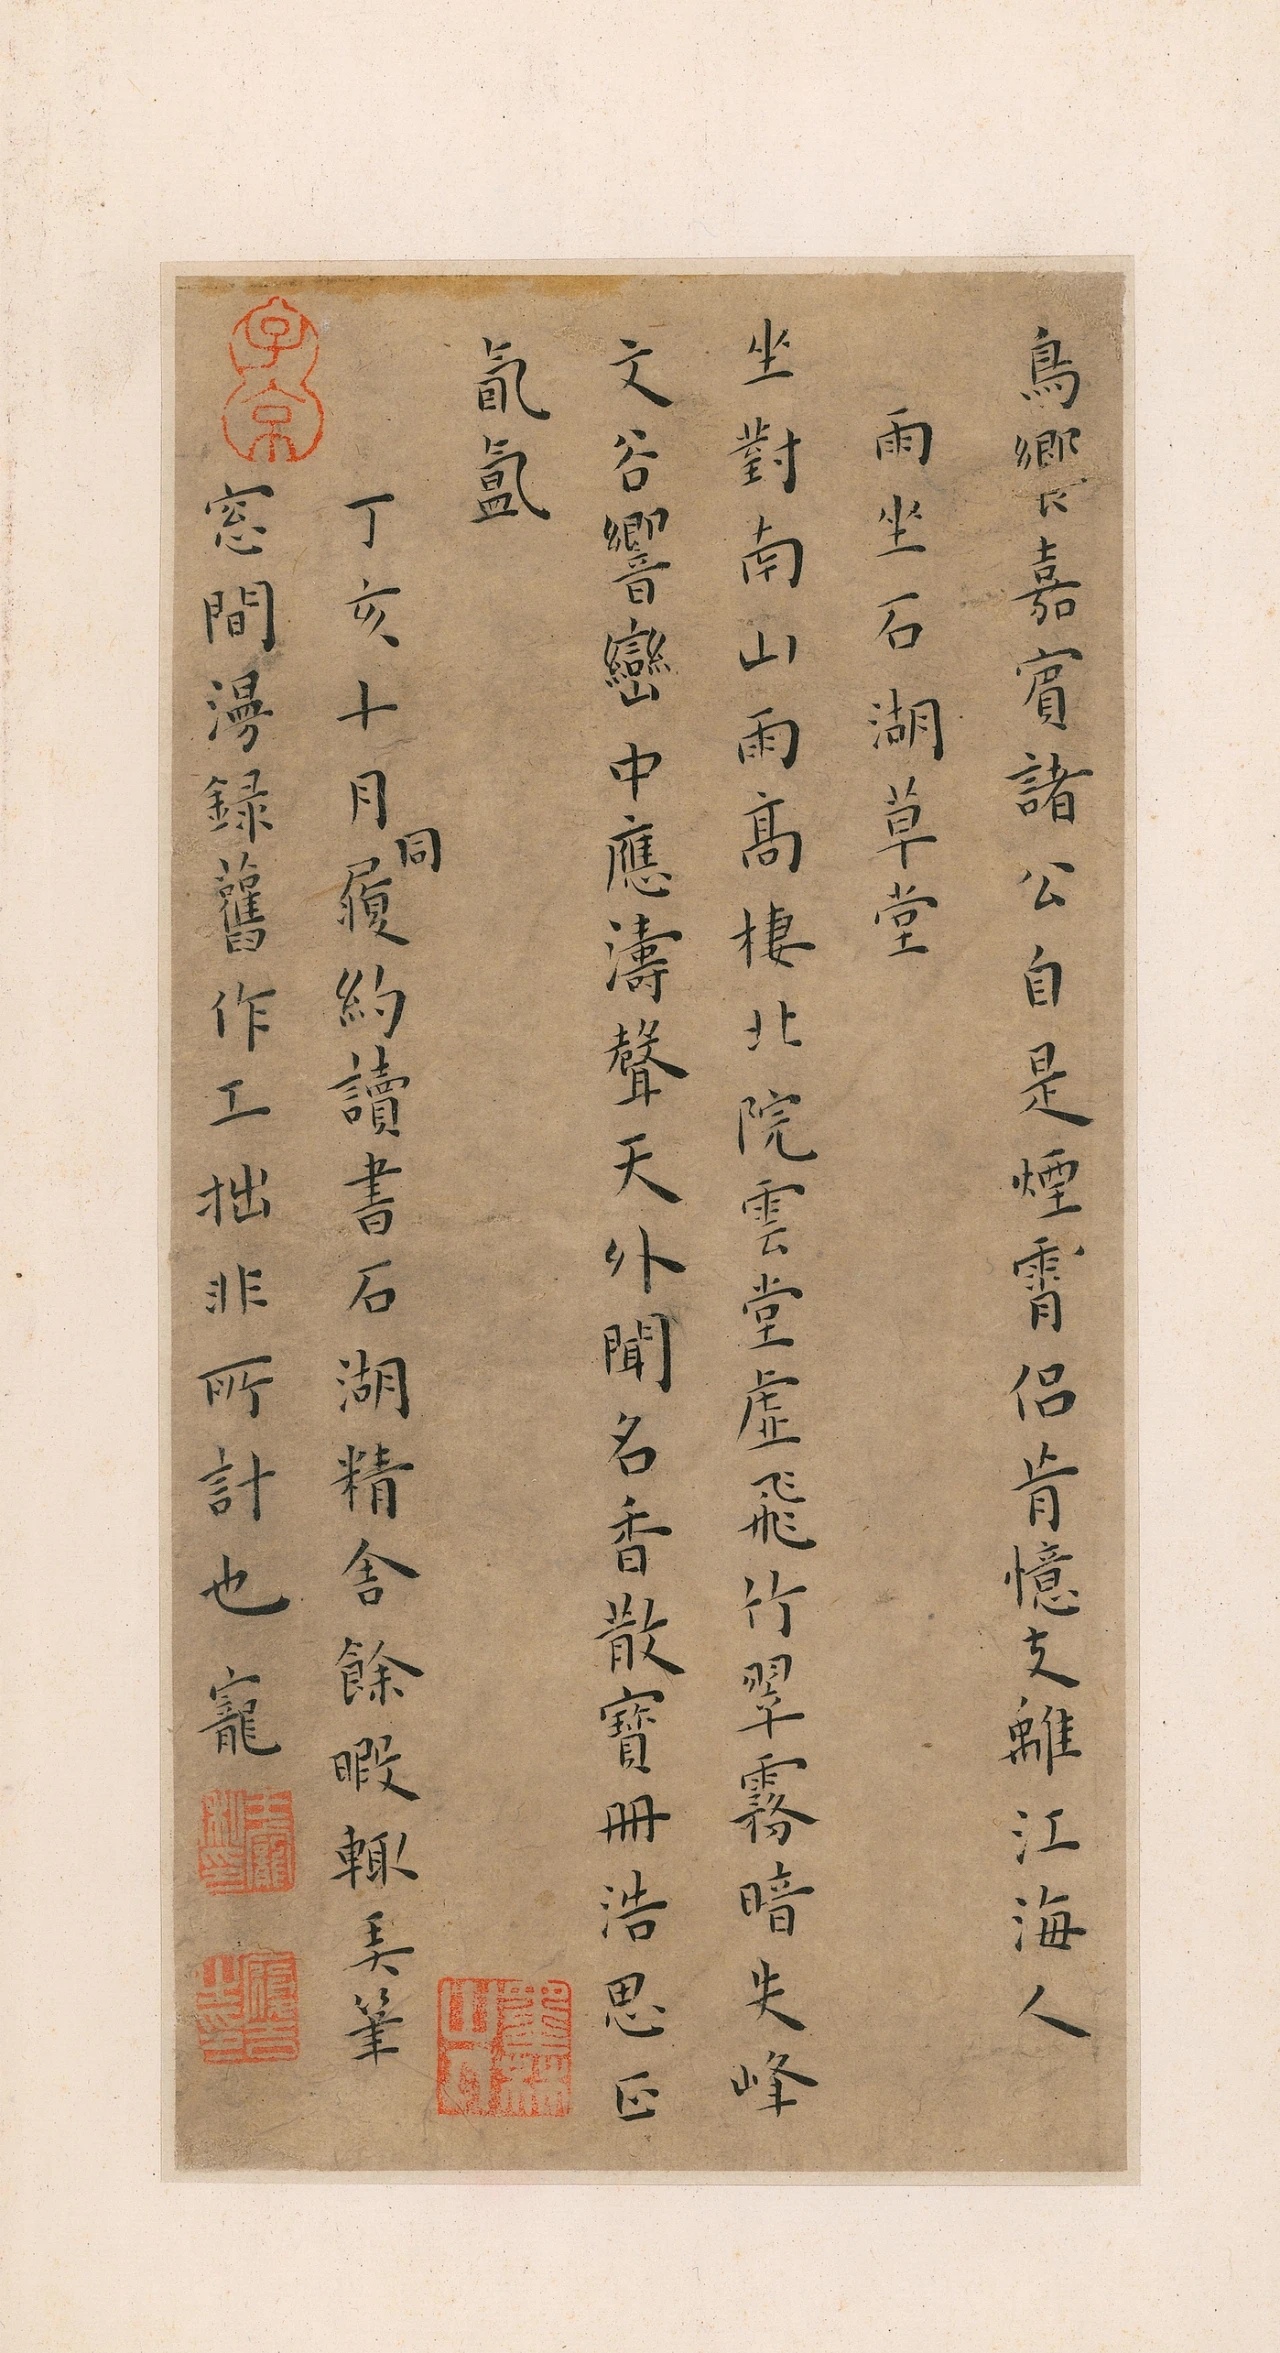 鳥嚮食嘉賓諸公自是煙霄侶肯憶支離江海人
雨坐石湖草堂
坐對南山雨高棲北院雲堂虛飛竹翠霧暗失峰
文谷響巒中應濤聲天外聞名香散寶冊浩思正
氤氳
丁亥十月同履約讀書石湖精舍餘暇輒弄筆
窓間漫録舊作工拙非所計也 寵
子京
王寵
履吉
墨林